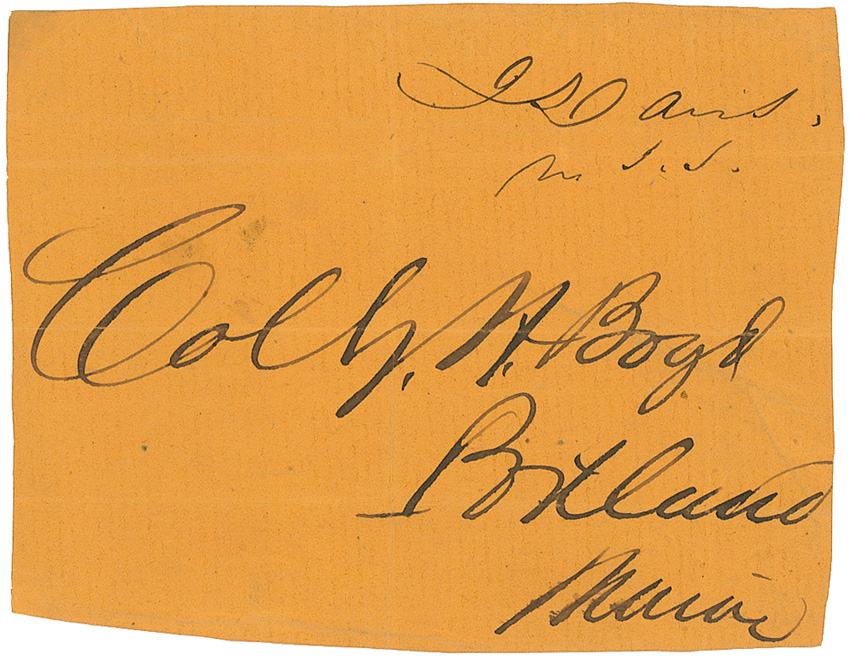 J Davis.
U. S. S.
Col G. W. Boyd
Portland
Maine